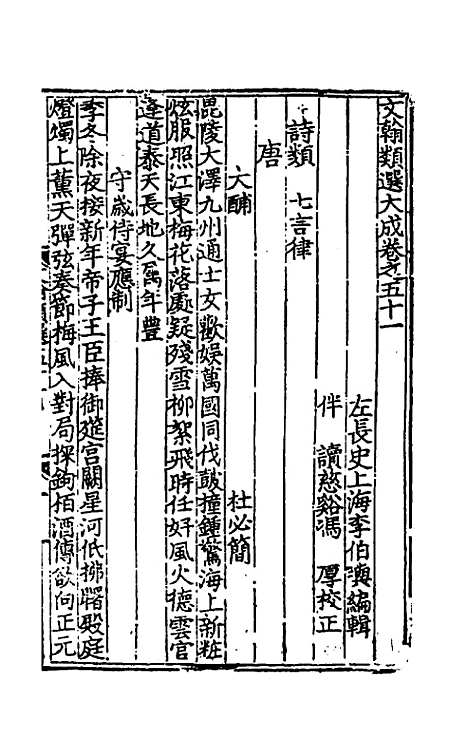 文翰類選大成卷之五十一
左長史上海李伯璵編輯
伴讀慈谿馮厚校正
詩類 七言律
唐
大酺 杜必簡
毘陵大澤九州通士女歡娛萬國同伐鼓撞鍾驚海上新粧
炫服照江東梅花落處疑殘雪柳絮飛時任好風火德雲官
逢道泰天長地久屬年豐
守歲侍宴應制
季冬除夜接新年帝子王臣捧御筵宮闕星河低拂曙殿庭
燈燭上薰天彈弦奏節梅風入對局探鉤栢酒傳欲向正元